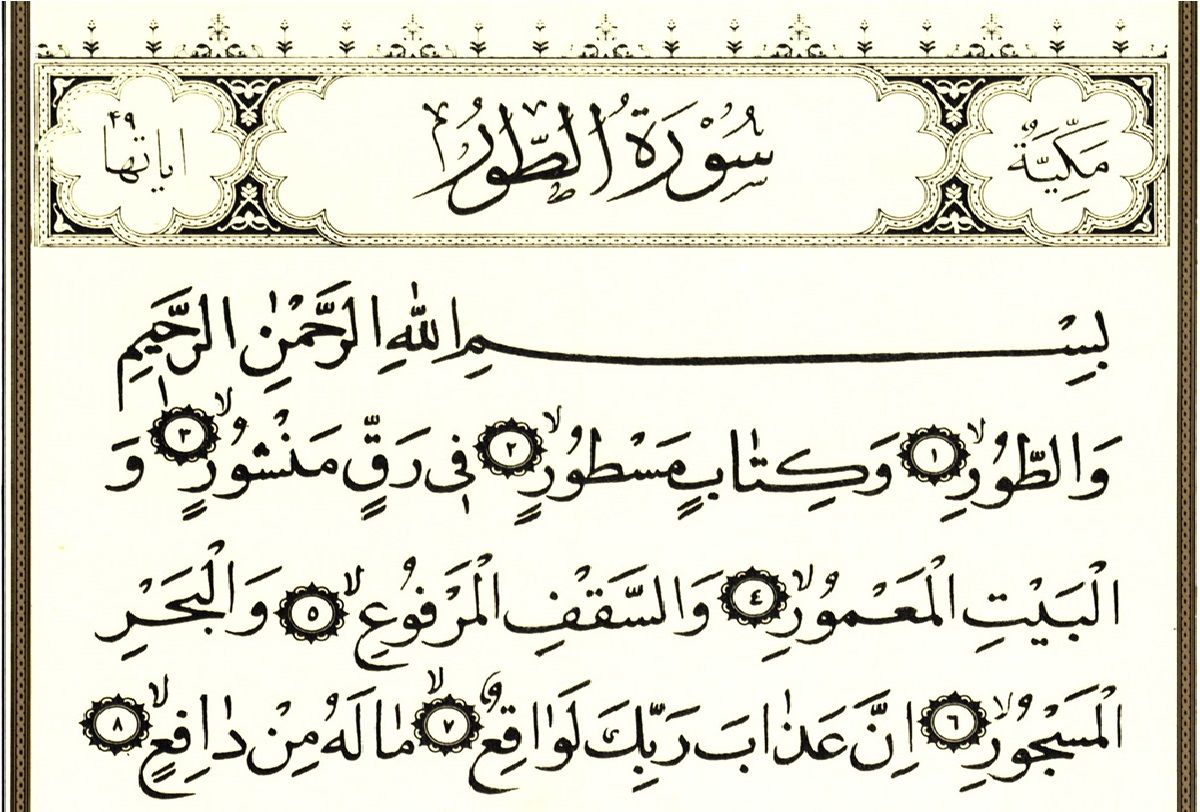 مَكِّيَّةٌ سُوْرَةُ الطُّوْرِ اٰيَاتُهَا ۴۹
بِسْمِ اللّٰهِ الرَّحْمٰنِ الرَّحِيْمِ
وَالطُّوْرِ ۙ ١ وَكِتٰبٍ مَسْطُوْرٍ ۙ ٢ فِيْ رَقٍّ مَنْشُوْرٍ ۙ ٣ وَ
الْبَيْتِ الْمَعْمُوْرِ ۙ ٤ وَالسَّقْفِ الْمَرْفُوْعِ ۙ ٥ وَالْبَحْرِ
الْمَسْجُوْرِ ۙ ٦ اِنَّ عَذَابَ رَبِّكَ لَوَاقِعٌ ۙ ٧ مَا لَهُ مِنْ دَافِعٍ ۙ ٨